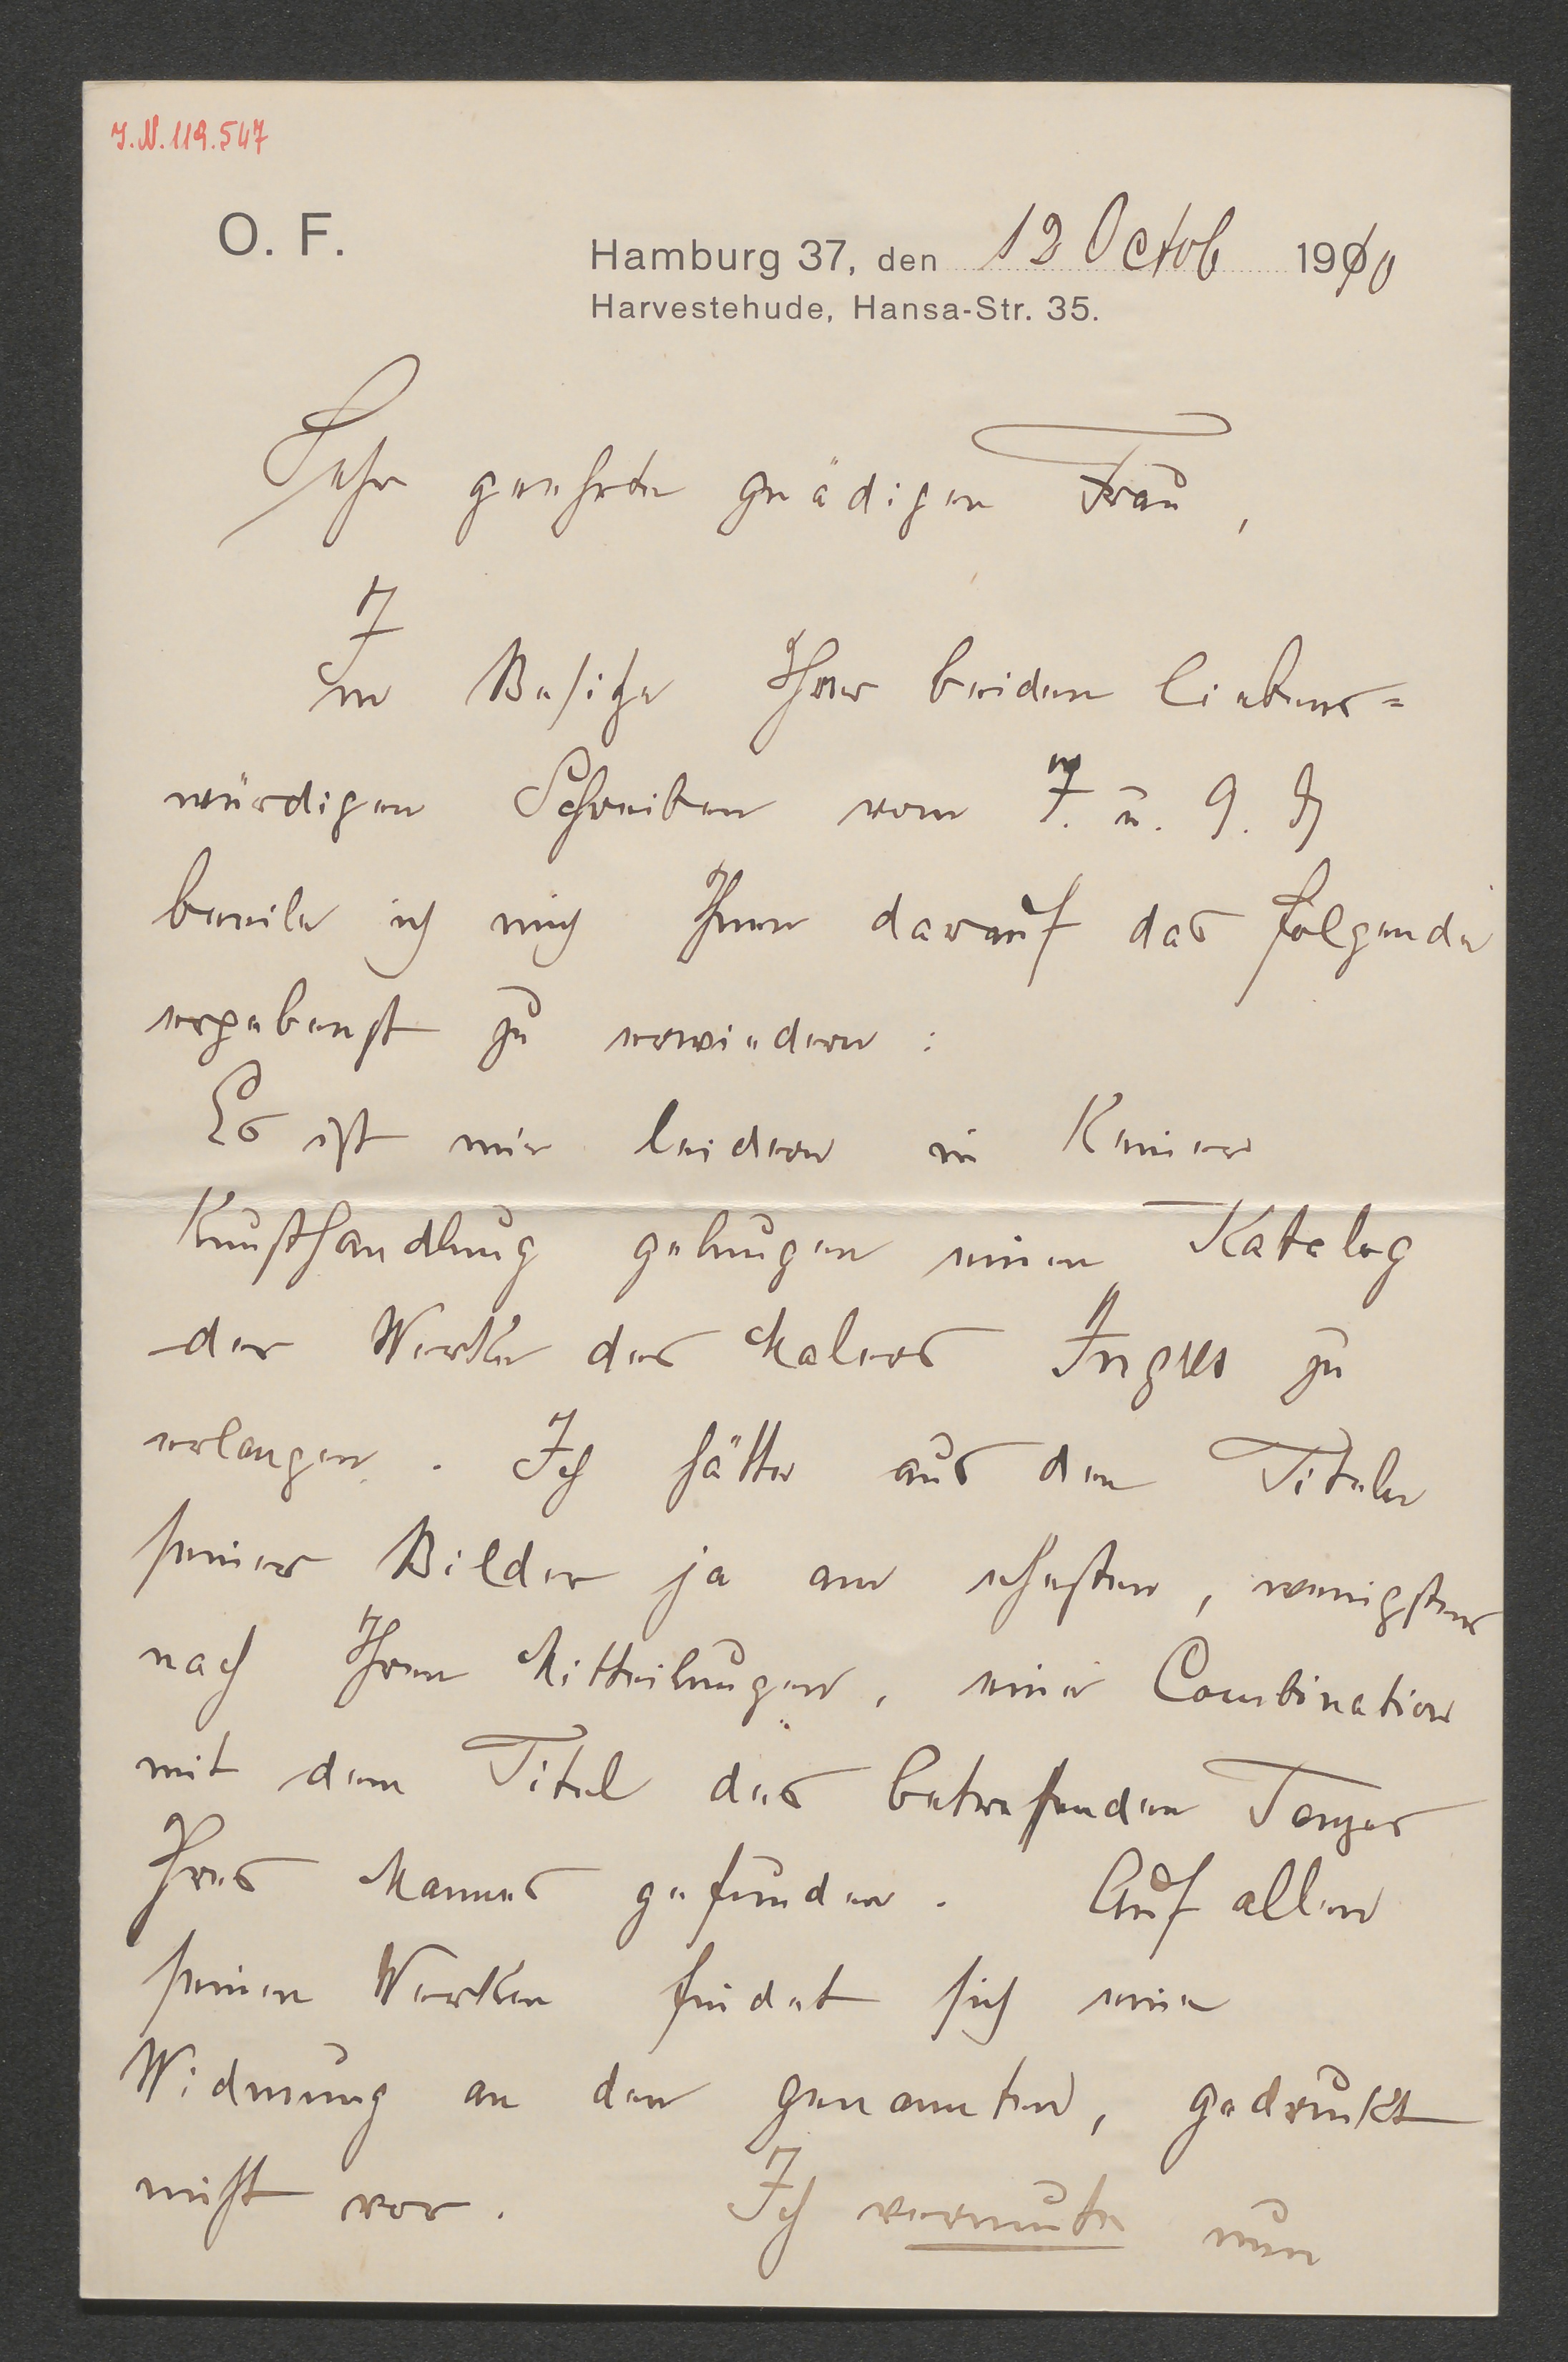 J.N. 119.547
O. F.
Hamburg 37, den 12 Octob 1910
Harvestehude, Hansa-Str. 35.
Sehr geehrte gnädigen Frau,
Im Besitze Ihrer beiden liebens=
würdigen Schreiben vom 7. u. 9. ds
beeile ich mich Ihnen darauf das folgende
ergebenst zu erwiedern:
Es ist mir leider in Keiner
Kunsthandlung gelungen einen Katalog
der Werke des Malers Ingres zu
erlangen. Ich hätte aus den Titeln
seiner Bilder ja am ehesten, wenigstens
nach Ihren Mitteilungen, eine Combination
mit dem Titel des betreffenden Tanzes
Ihres Mannes gefunden. Auf allen
seinen Werken findet sich eine
Widmung an den genannten, gedruckt
nicht vor. Ich vermute nun